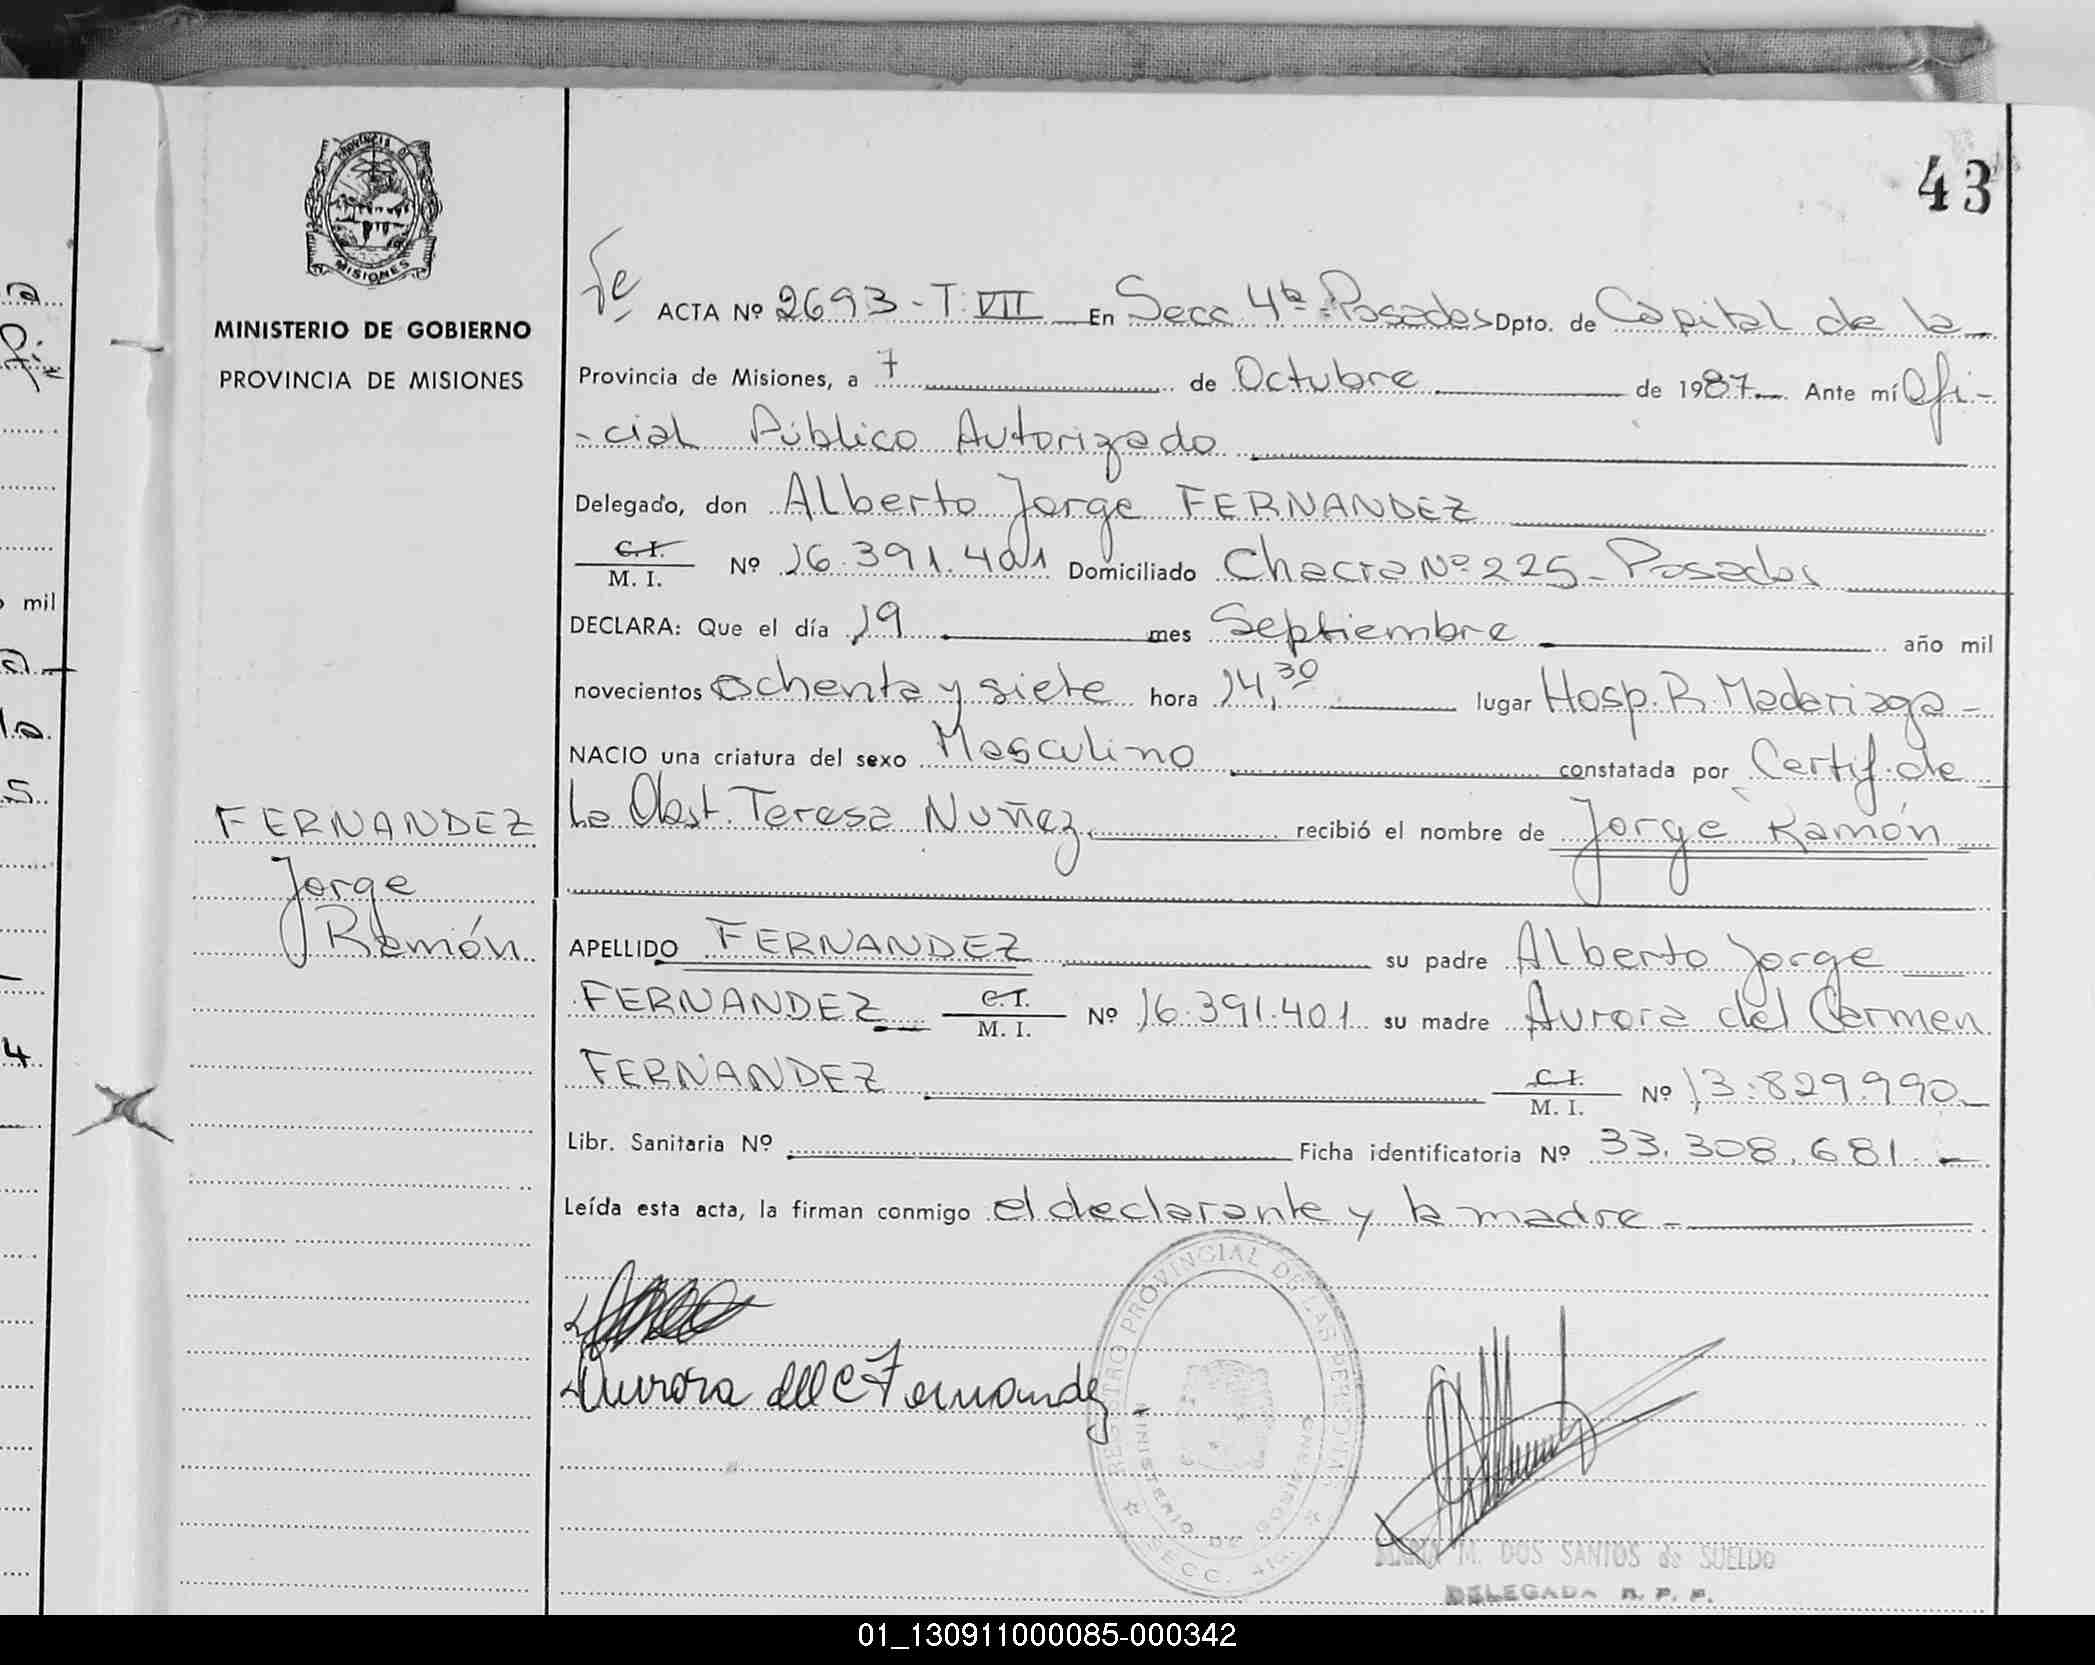 43
PROVINCIA DE
MISIONES
MINISTERIO DE GOBIERNO
PROVINCIA DE MISIONES
ACTA Nº 2693 - T: VII En Secc 4ta - Posadas Dpto. de Capital de la
Provincia de Misiones, a 7 de Octubre de 1987 Ante mí Ofi-
-cial Público Autorizado
Delegado, don Alberto Jorge FERNANDEZ
C. I.
M. I. Nº 16.391.401 Domiciliado Chacra Nº 225 - Posadas
DECLARA: Que el día 19 mes Septiembre año mil
novecientos ochenta y siete hora 14,30 lugar Hosp. R. Madariaga -
NACIO una criatura del sexo Masculino constatada por Certif. de
la Obst. Teresa Nuñez recibió el nombre de Jorge Ramón
FERNANDEZ
Jorge
Ramón
APELLIDO FERNANDEZ su padre Alberto Jorge
FERNANDEZ C. I. M. I. Nº 16.391.401 su madre Aurora del Carmen
FERNANDEZ C. I. M. I. Nº 13.829.990
Libr. Sanitaria Nº Ficha identificatoria Nº 33.308.681 -
Leída esta acta, la firman conmigo el declarante y la madre -
Aurora del C Fernandez
REGISTRO PROVINCIAL DE LAS PERSONAS
MINISTERIO DE GOBIERNO
SECC. 4ta.
MARIA M. DOS SANTOS de SUELDO
DELEGADA R. P. P.
mil
01_130911000085-000342